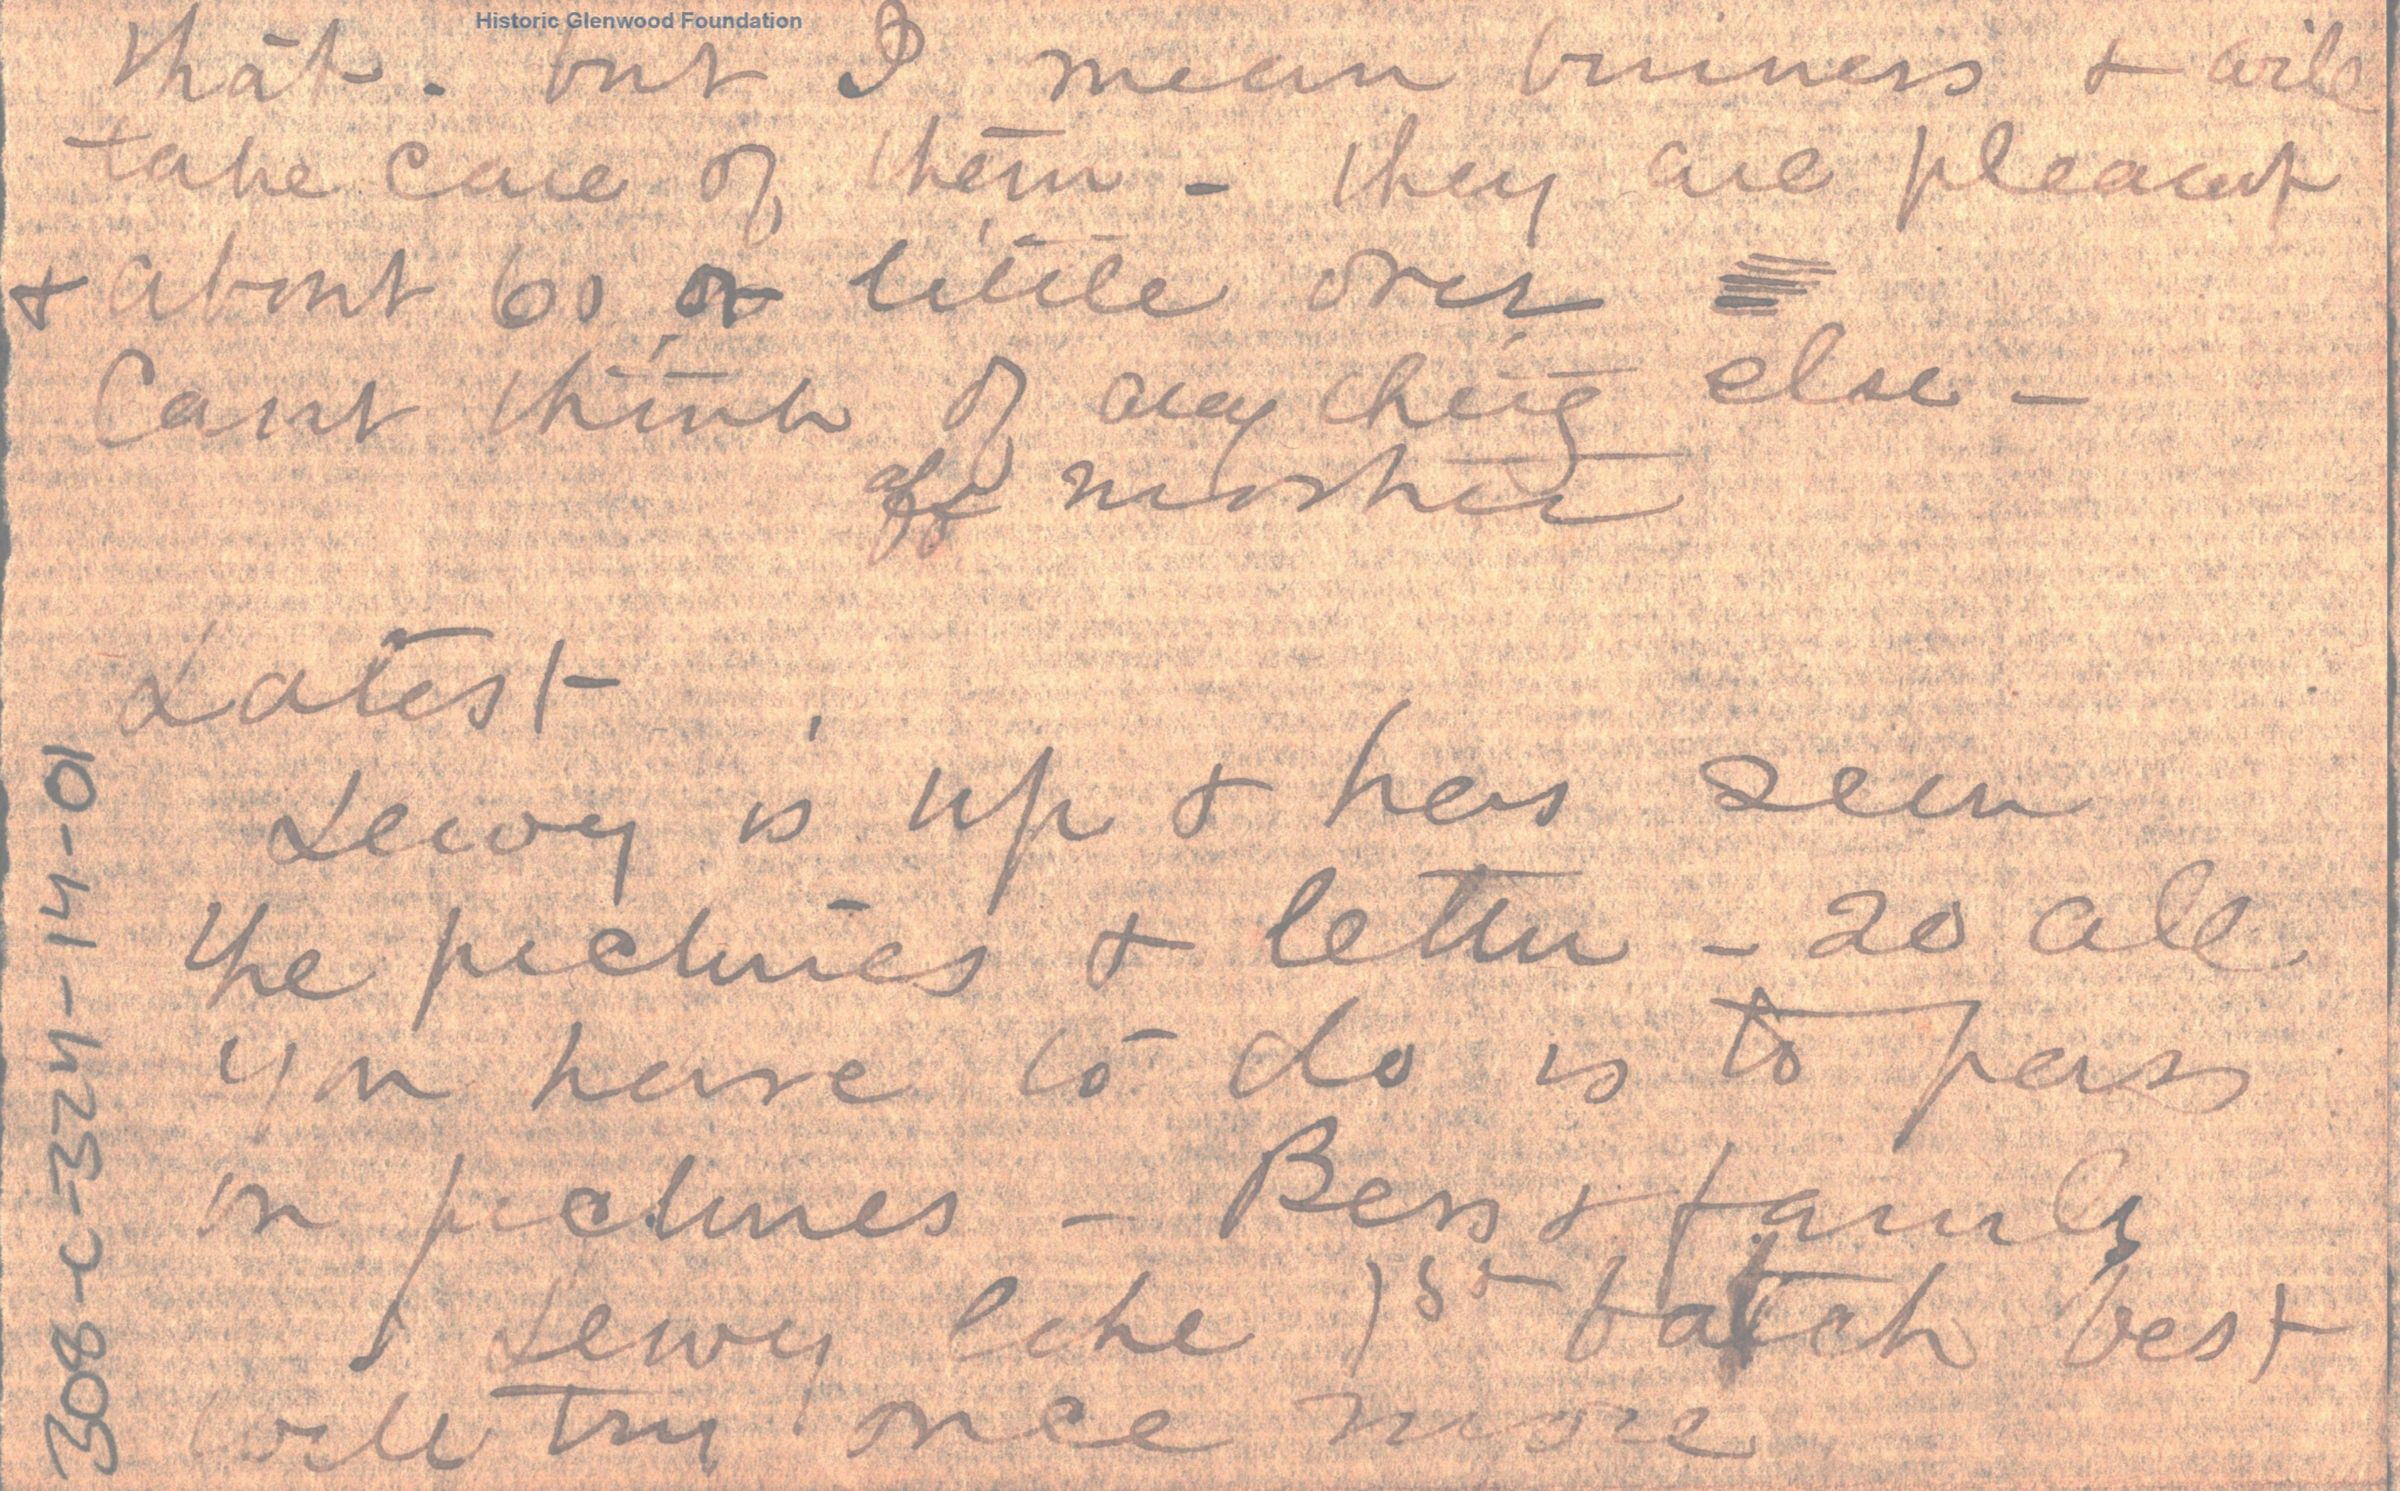 Historic Glenwood Foundation
that. but I mean business & will
take care of them - they are pleasant
& about 60 or little over
Cant think of anything else -
aff mother
Latest
Leroy is up & has seen
the pictures & letter - so all
you have to do is to pass
on pictures - Bess & family
& Leroy like 1st batch best
will try once more
308-C-324-14-01